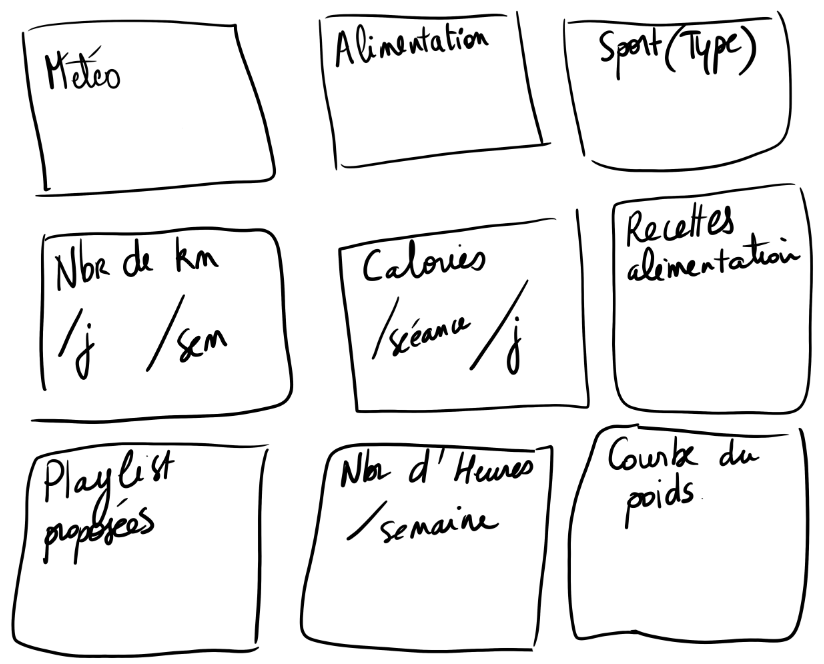 Météo
Alimentation
Sport (Type)
Nbr de km
/j /sem
Calories
/scéance /j
Recettes
alimentation
Playlist
proposées
Nbr d'Heures
/semaine
Courbe du
poids